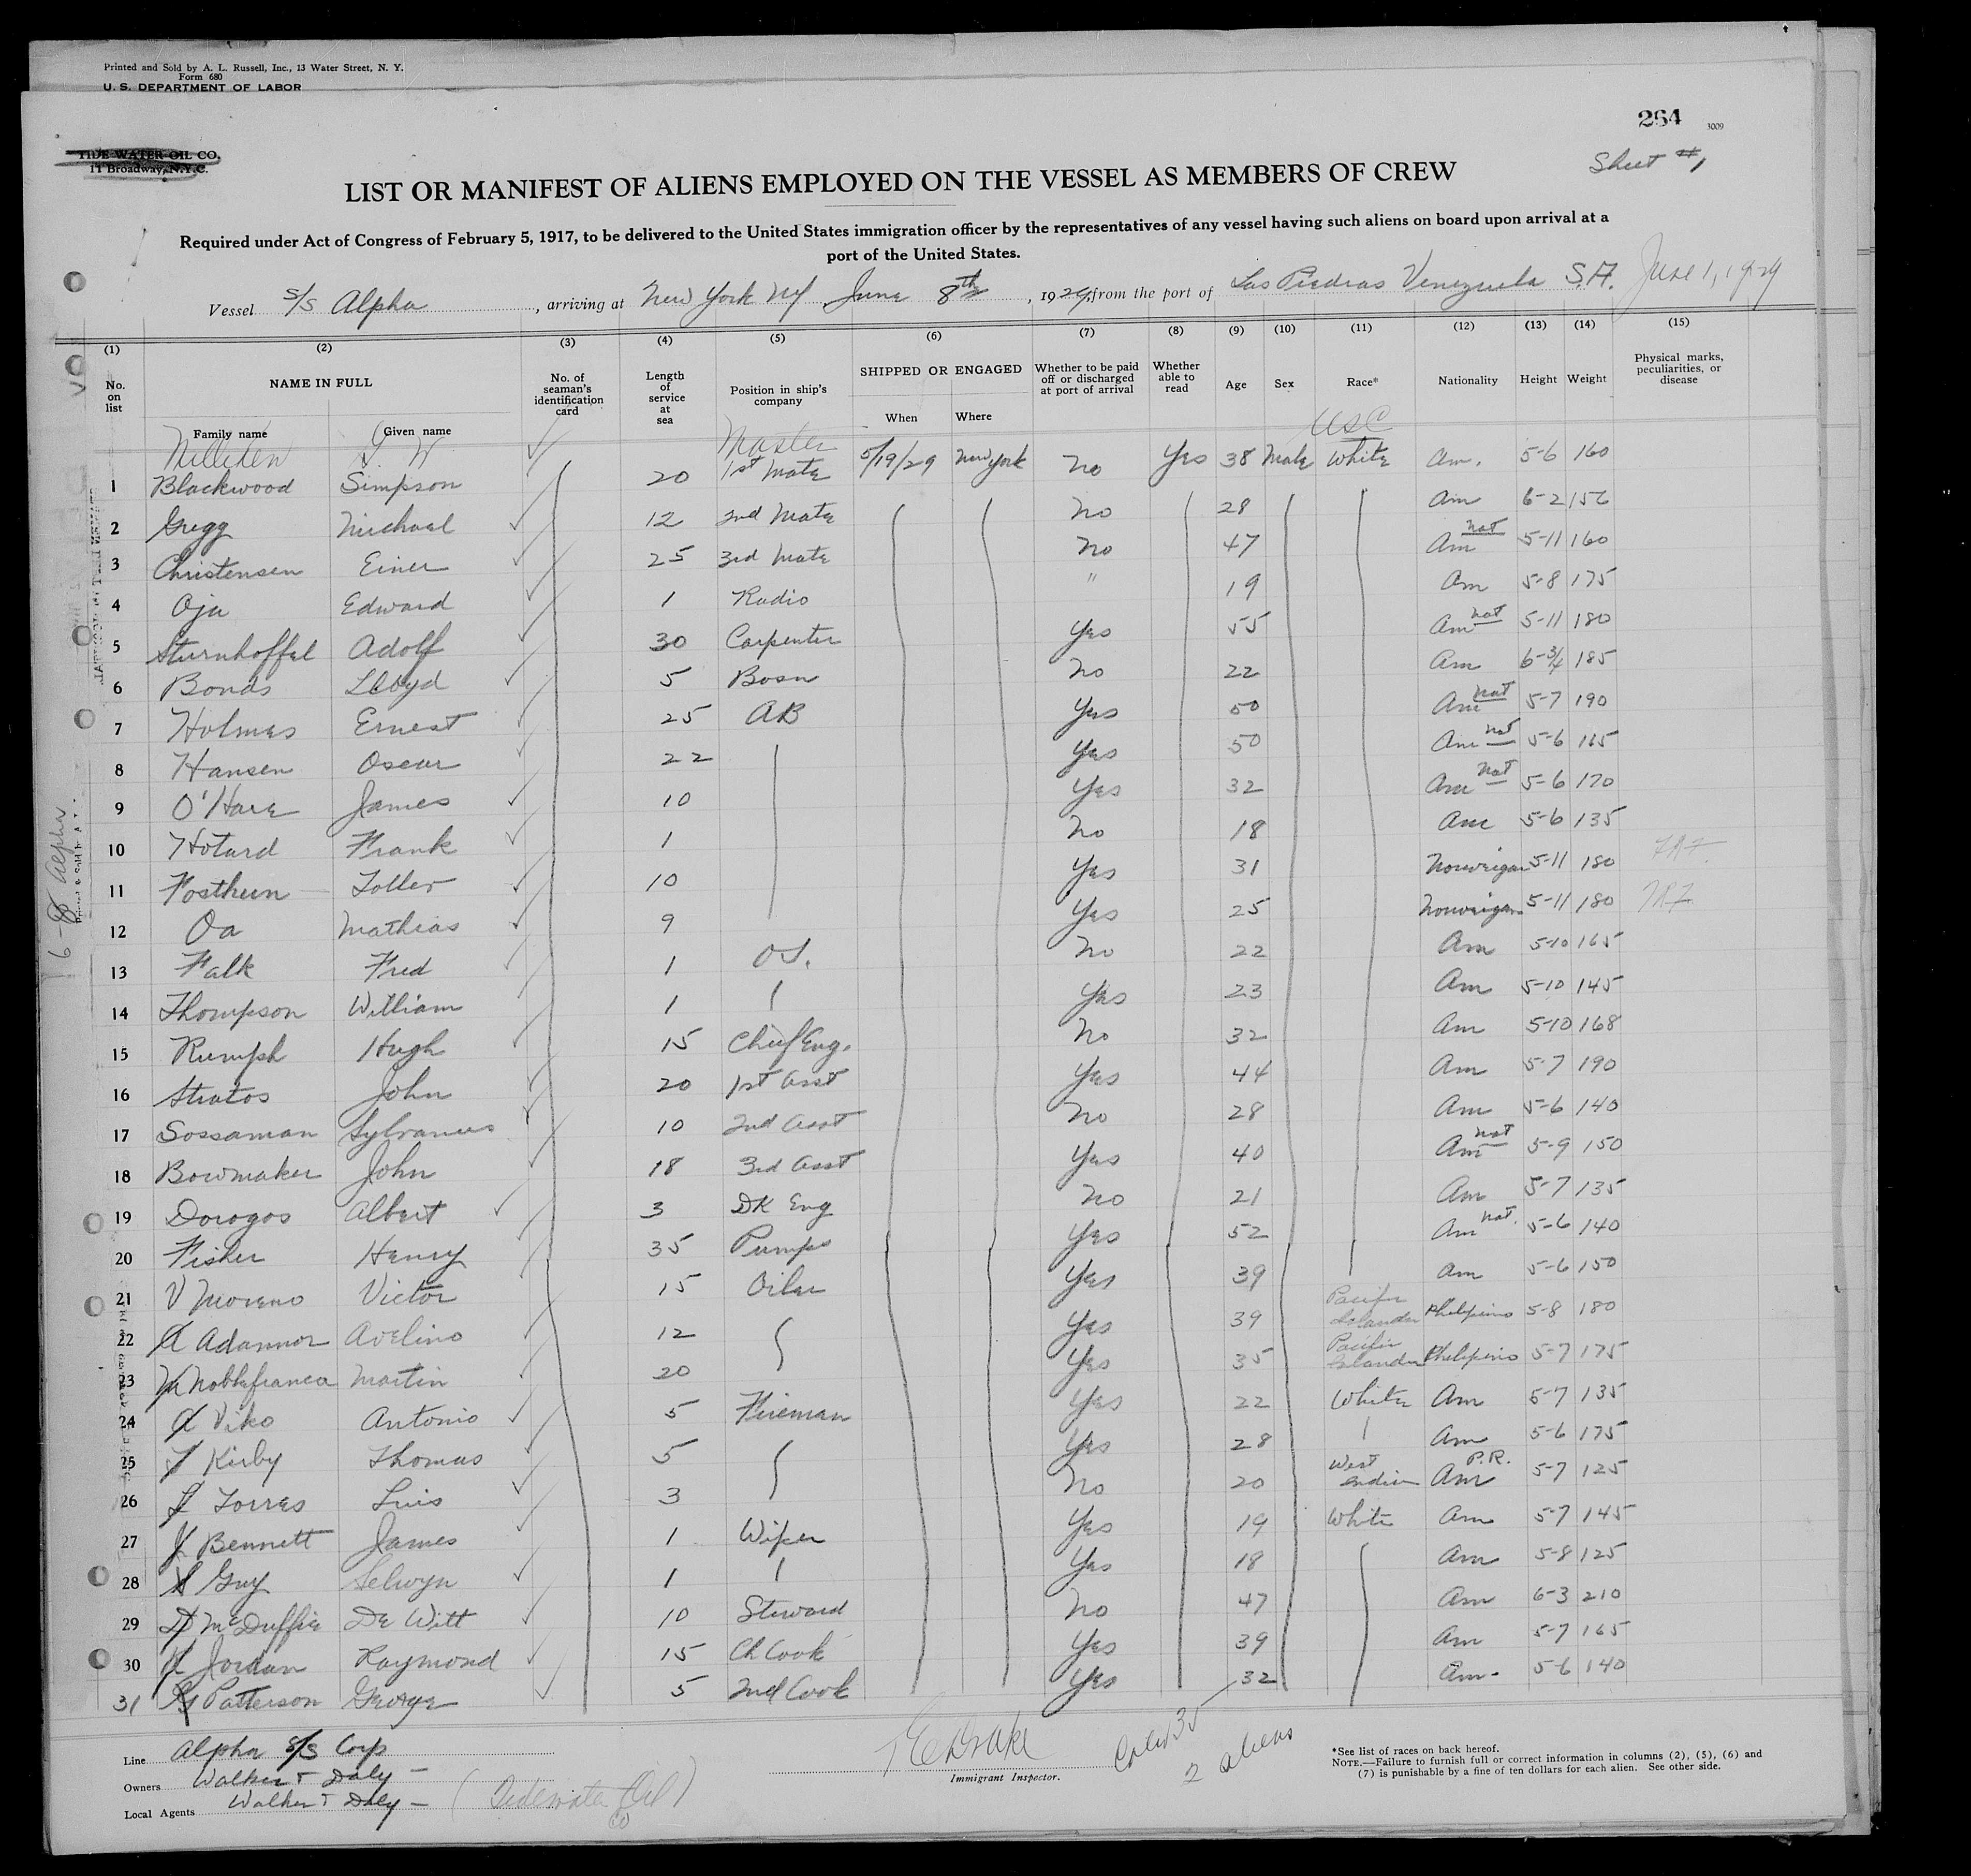 Printed and Sold by A. L. Russell, Inc., 13 Water Street, N. Y.
Form 680
U. S. DEPARTMENT OF LABOR
264
3009
TIDE WATER OIL CO.
11 Broadway, N.Y.C.
Sheet #1
LIST OR MANIFEST OF ALIENS EMPLOYED ON THE VESSEL AS MEMBERS OF CREW
Required under Act of Congress of February 5, 1917, to be delivered to the United States immigration officer by the representatives of any vessel having such aliens on board upon arrival at a
port of the United States.
Vessel S/S Alpha, arriving at New York NY June 8th, 1929, from the port of Las Piedras Venezuela S.A. June 1, 1929
(1) (2) (3) (4) (5) (6) (7) (8) (9) (10) (11) (12) (13) (14) (15)
No. on list NAME IN FULL Family name Given name No. of seaman's identification card Length of service at sea Position in ship's company SHIPPED OR ENGAGED When Where Whether to be paid off or discharged at port of arrival Whether able to read Age Sex Race* Nationality Height Weight Physical marks, peculiarities, or disease
Milliken G W Master USC
1 Blackwood Simpson 20 1st Mate 5/19/29 New York No Yes 38 Male White Am. 5-6 160
2 Gregg Michael 12 2nd Mate No 28 Am 6-2 156
3 Christensen Einer 25 3rd Mate No 47 Am nat 5-11 160
4 Oja Edward 1 Radio " 19 Am 5-8 175
5 Sturnhoffel Adolf 30 Carpenter Yes 55 Am nat 5-11 180
6 Bonds Lloyd 5 Bosn No 22 Am 6-3/4 185
7 Holmes Ernest 25 AB Yes 50 Am nat 5-7 190
8 Hansen Oscar 22 Yes 50 Am nat 5-6 165
9 O'Hare James 10 Yes 32 Am nat 5-6 170
10 Hotard Frank 1 No 18 Am 5-6 135
11 Fostheim Toller 10 Yes 31 Norweigan 5-11 180
12 Oa Mathias 9 Yes 25 Norweigan 5-11 180
13 Falk Fred 1 OS. No 22 Am 5-10 165
14 Thompson William 1 Yes 23 Am 5-10 145
15 Rumph Hugh 15 Chief Eng. No 32 Am 5-10 168
16 Stratos John 20 1st Asst Yes 44 Am 5-7 190
17 Sossaman Sylvanus 10 2nd Asst No 28 Am 5-6 140
18 Bowmaker John 18 3rd Asst Yes 40 Am nat 5-9 150
19 Dorogos Albert 3 DK Eng No 21 Am 5-7 135
20 Fisher Henry 35 Pumps Yes 52 Am nat. 5-6 140
21 V Moreno Victor 15 Oiler Yes 39 Am 5-6 150
22 A Adannor Avelino 12 Yes 39 Pacific Islander Philipino 5-8 180
23 M Noblefranca Martin 20 Yes 35 Pacific Islander Philipino 5-7 175
24 A Viko Antonio 5 Fireman Yes 22 White Am 5-7 135
25 T Kirby Thomas 5 Yes 28 Am 5-6 175
26 L Torres Luis 3 No 20 West Indian Am P.R. 5-7 125
27 J Bennett James 1 Wiper Yes 19 White Am 5-7 145
28 S Guy Selwyn 1 Yes 18 Am 5-8 125
29 D McDuffie De Witt 10 Steward No 47 Am 6-3 210
30 R Jordan Raymond 15 Ch Cook Yes 39 Am 5-7 165
31 G Patterson George 5 2nd Cook Yes 32 Am. 5-6 140
6-8 Alpha
Line Alpha S/S Corp
Owners Walker & Daly
Local Agents Walker & Daly (Tidewater Oil Co)
Drake
Immigrant Inspector.
35
2 aliens
*See list of races on back hereof.
NOTE.—Failure to furnish full or correct information in columns (2), (5), (6) and
(7) is punishable by a fine of ten dollars for each alien. See other side.